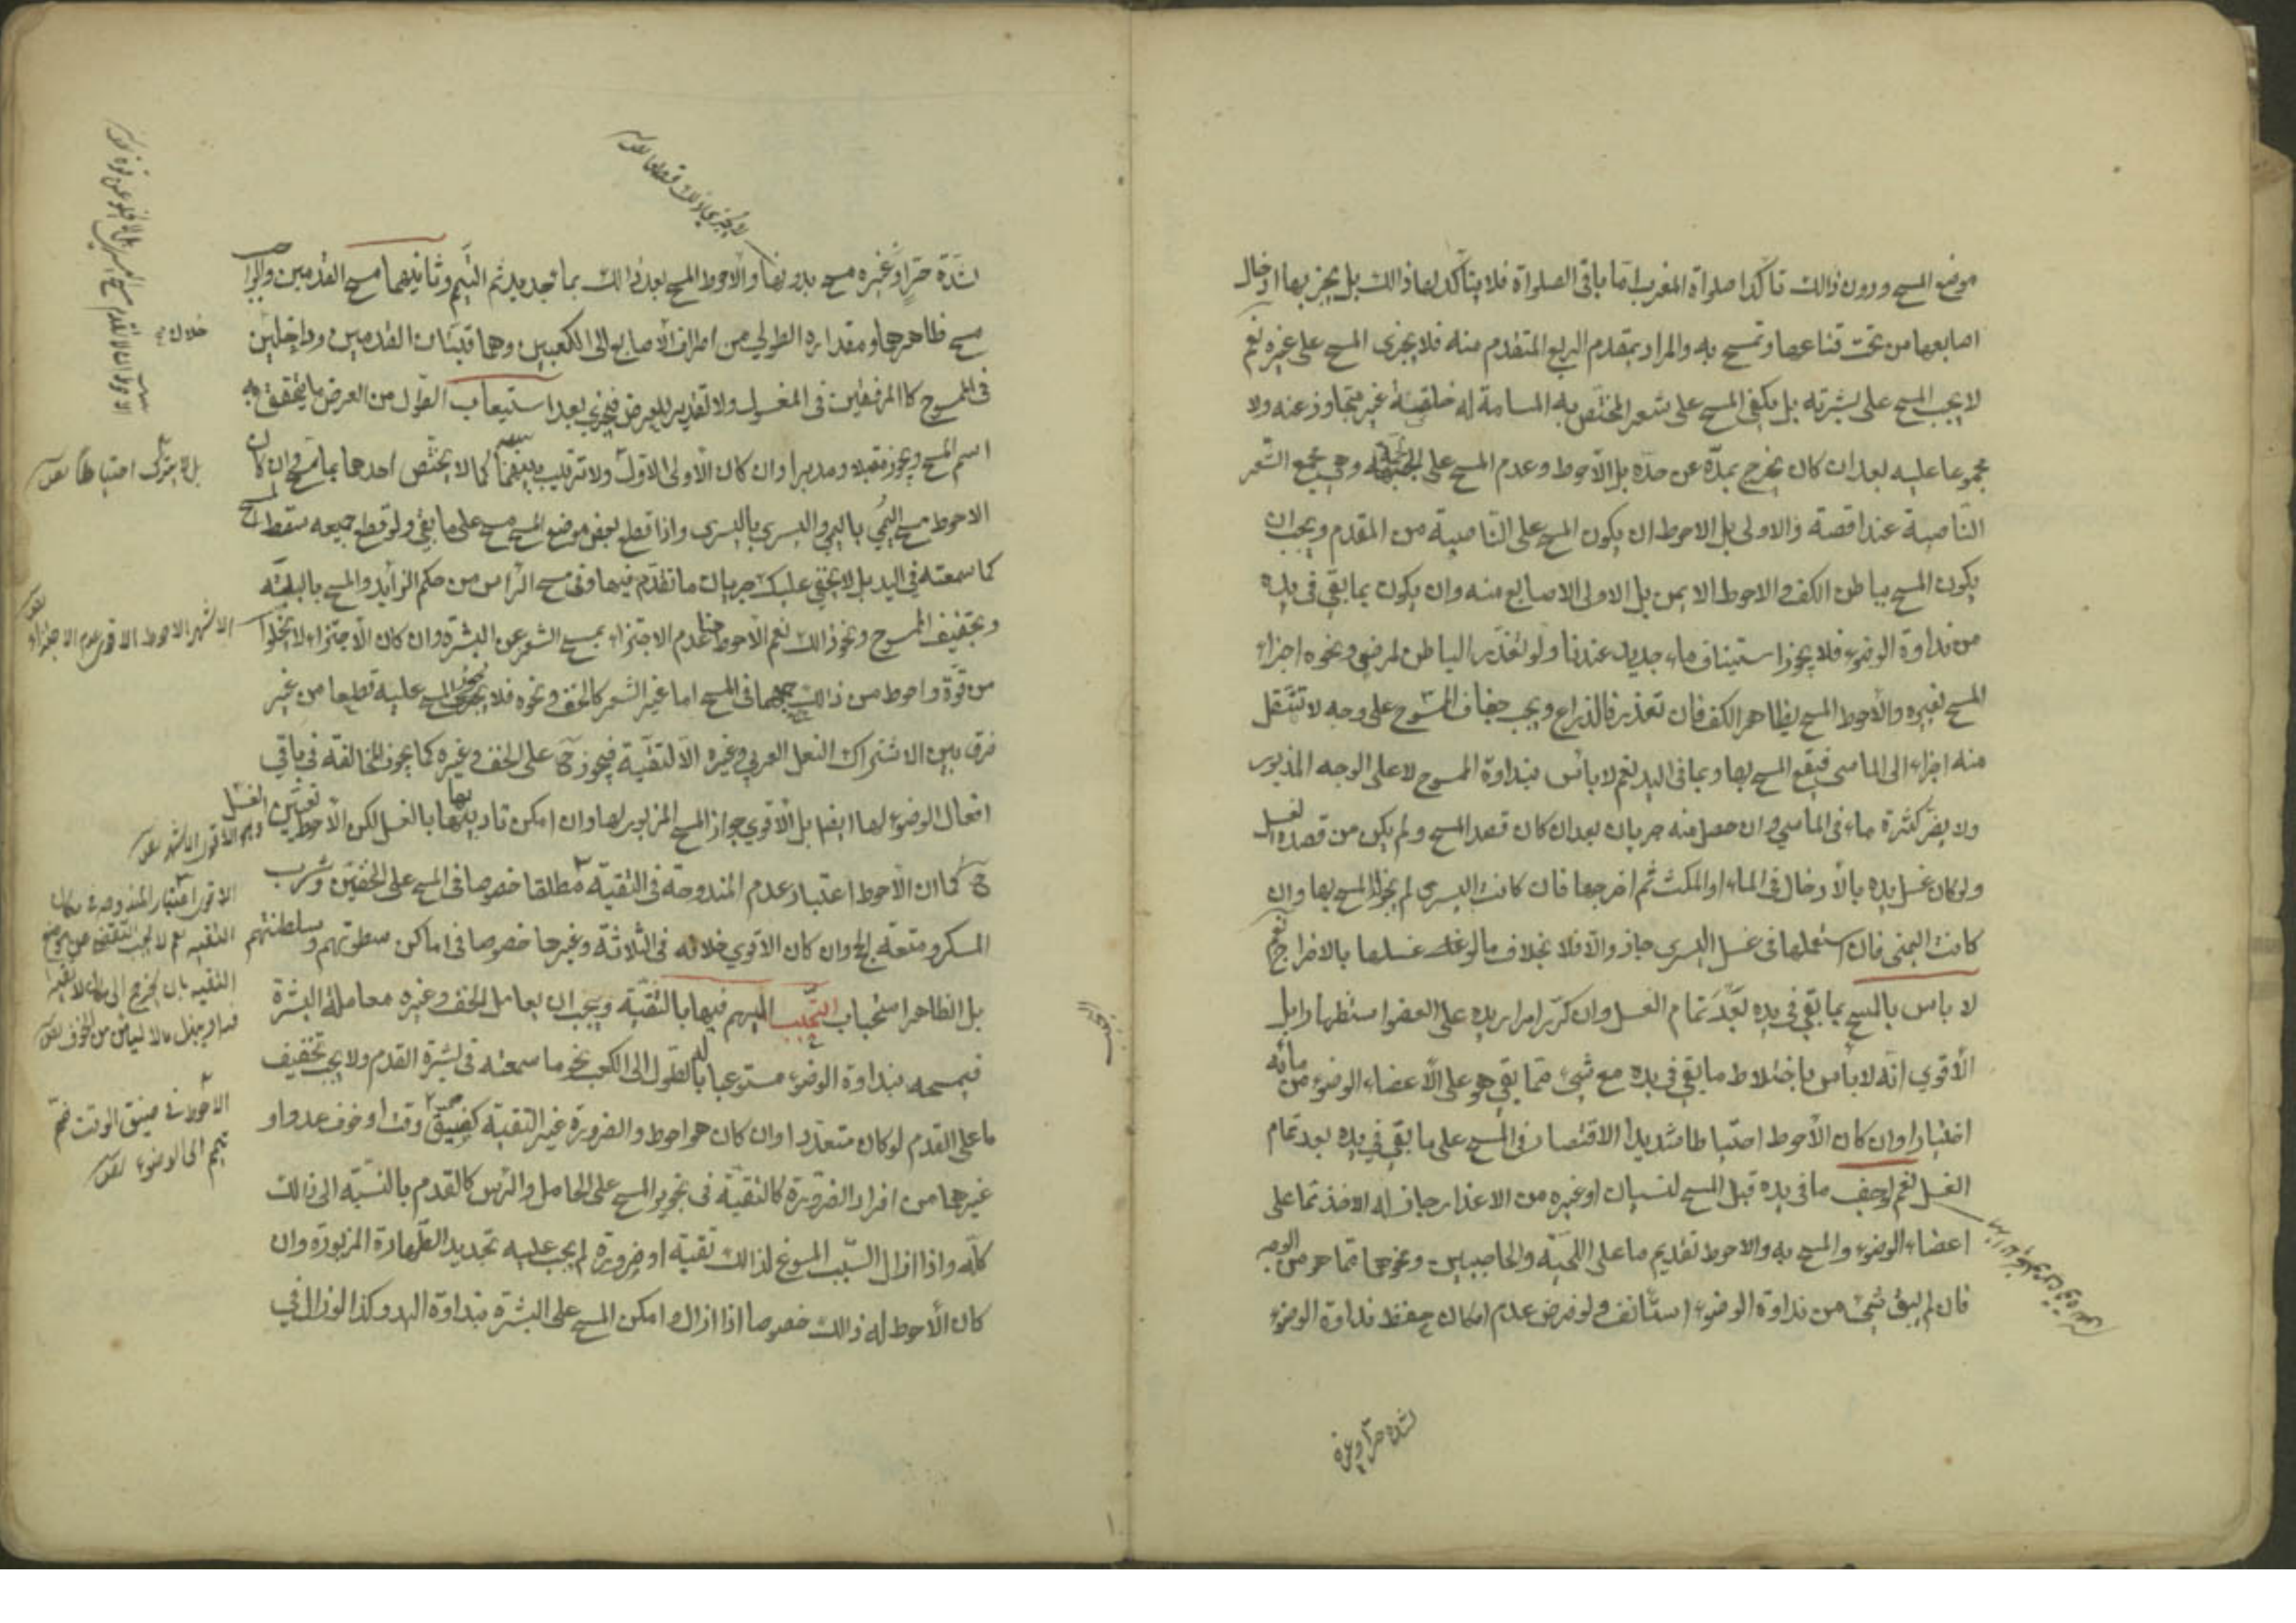 موضع المسح ودون ذالك تأكدا صلواة المغرب امّا باقى الصلواة فلا يتأكد لها ذالك بل يجزيها ادخال
اصابعها من تحت قناعها وتمسح به والمراد بمقدم الربع المتقدم منه فلا يجزى المسح على غيره نعم
لا يجب المسح على بشرته بل يكفى المسح على شعر المختص به المسامة له خلقة غير متجاوز عنه ولا
مجموعا عليه بعد ان كان يخرج بمدّه عن حدّه بل الاحوط وعدم المسح على الجمّة وهي مجمع الشعر
الناصية عند اقصة والاولى بل الاحوط ان يكون المسح على الناصية من المقدم ويجب ان
يكون المسح بباطن الكف والاحوط الايمن بل الاولى الاصابع منه وان يكون بما بقي في يده
من نداوة الوضوء فلا يجوز استيناف ماء جديد عندنا ولو تعذر الباطن لمرض ونحوه اجزاء
المسح بغيره والأحوط المسح بظاهر الكف فان تعذر فالذراع ويجب جفاف الممسوح على وجه لا تنتقل
منه اجزاء الى الماسح فيقع المسح بها وبما فى اليد نعم لا بأس بنداوة الممسوح لا على الوجه المذبور
ولا يضر كثرة ماء فى الماسح وان حصل منه جريان بعد ان كان قصد المسح ولم يكن من قصده الغسل
ولو كان غسل يده بالأدخال فى الماء او المكث ثم اخرجها فان كانت اليسرى لم يجز المسح بها وان
كانت اليمنى فان استعملها فى غسل اليسرى جاز والّا فلا بخلاف ما لو غسلها بالاخراج نعم
لا بأس بالمسح بما بقي في يده بعد تمام الغسل وان كرّر امرار يده على العضو استظهارا بل
الأقوي انّه لا بأس باختلاط ما بقي في يده مع شىء ممّا بقي هو على الأعضاء الوضوء من مائه
اختيارا وان كان الأحوط احتياطا شديدا الاقتصار فى المسح على ما بقي في يده بعد تمام
الغسل نعم لو جف ما فى يده قبل المسح لنسيان او غيره من الاعذار جاز له الاخذ مما على
اعضاء الوضوء والمسح به والاحوط تقديم ما على اللحية والحاجبين ونحوهما ممّا هو من الوجه
فان لم يبق شىء من نداوة الوضوء استأنف ولو فرض عدم امكان حفظ نداوة الوضوء
لشدة حرّ او غيره
لشدّة حرّ او غيره مسح بدونها والاحوط المسح بعد ذالك بماء جديد ثم التيمم وثانيهما مسح القدمين والواجب
مسح ظاهرهما ومقداره الطولي من اطراف الأصابع الى الكعبين وهما قبتان القدمين وداخلين
فى الممسوح كالمرفقين فى المغسول ولا تقدير للعرض فيجزى بعد استيعاب الطول من العرض ما يتحقق به
اسم المسح ويجوز مقبلا ومدبرا وان كان الأولى الاول ولا ترتيب بينهما كما لا يختص احدهما بماسح وان كان
الاحوط مسح اليمني باليمي واليسرى باليسرى واذا قطع بعض موضع المسح مسح على ما بقي ولو قطع جميعه سقط المسح
كما سمعته في اليد بل لا يخفى عليك جريان ما تقدّم فيها وفى مسح الرأس من حكم الزايد والمسح بالبلّة
وتجفيف الممسوح ونحو ذالك نعم الأحوط هنا عدم الاجتزاء بمسح الشعر عن البشرة وان كان الاجتزاء لا يخلوا
من قوّة واحوط من ذالك جمعهما فى المسح اما غير الشعر كالخف ونحوه فلا يجزى المسح عليه قطعا من غير
فرق بين الاشتراك النعل العربي وغيره الّا لتقيّة فيجوز ح على الخف وغيره كما يجوز المخالفة في باقي
افعال الوضوء لها ايضا بل الأقوي جواز المسح المزبور لها وان امكن تاديتها بالغسل لكن الأحوط تعيّن الغسل
ح كما ان الأحوط اعتبار عدم المندوحة فى التقية مطلقا خصوصا فى المسح على الخفين وشرب
المسكر ومتعة الحج وان كان الاقوي خلافه فى الثلاثة وغيرها خصوصا فى اماكن سطوتهم وسلطنتهم
بل الظاهر استحباب التحبب اليهم فيها بالتقية ويجب ان يعامل الخف وغيره معاملة البشرة
فيمسحه بنداوة الوضوء مستوعبا بالطول الى الكعب نحو ما سمعته فى بشرة القدم ولا يجب تخفيف
ما على القدم لو كان متعددا وان كان هو احوط والضرورة غير التقية كضيق وقت او خوف عدو او
غيرها من افراد الضرورة كالتقية فى تجويز المسح على الحامل والرأس كالقدم بالنسبة الى ذالك
كلّه واذا زال السّبب المسوغ لذالك تقية او ضرورة لم يجب عليه تجديد الطّهارة المزبورة وان
كان الأحوط له ذالك خصوصا اذا زال وامكن المسح على البشرة بنداوة اليد وكذا لو زال في
بل لا يترك احتياطا
الاشهر الاحوط الاقوى عدم الاجتزاء
الاحوط فى ضيق الوقت ضمّ
تيمم الى الوضوء